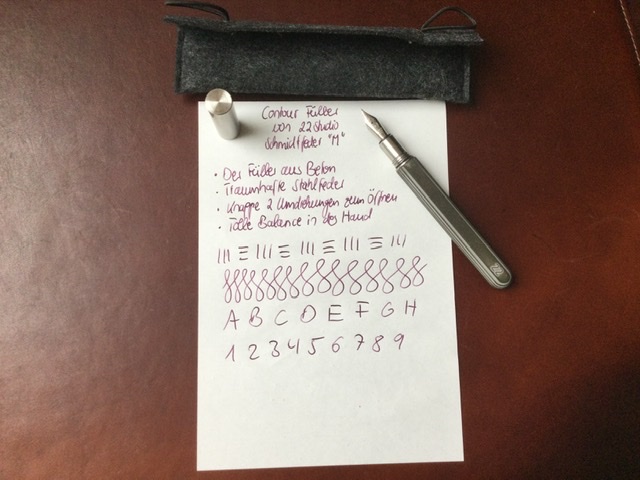 Contour Füller
von 22 Studio
Schmidtfeder "M"
• Der Füller aus Beton
• Traumhafte Stahlfeder
• Knappe 2 Umdrehungen zum Öffnen
• Tolle Balance in der Hand
A B C D E F G H
1 2 3 4 5 6 7 8 9